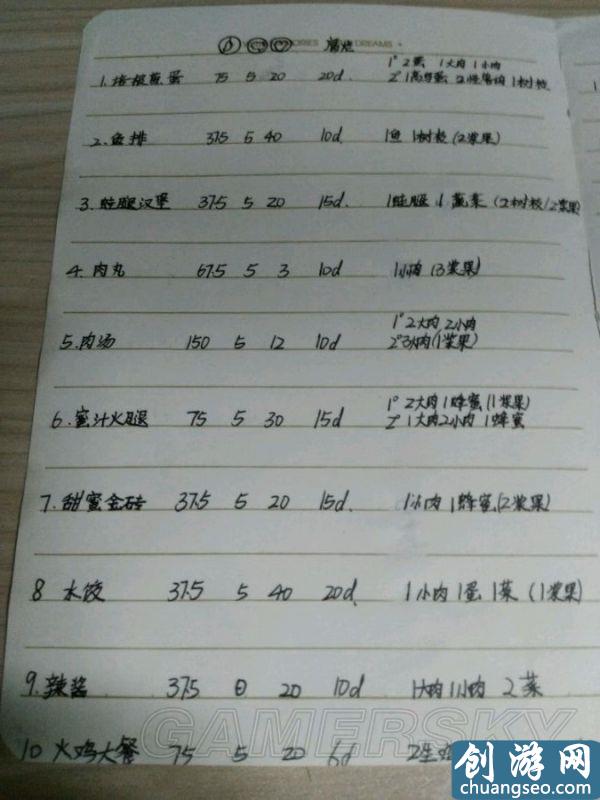 ORIES DREAMS 腐烂
1° 2蛋 1大肉 1小肉
1. 培根煎蛋 75 5 20 20d 2° 1高鸟蛋 2怪兽肉 1树枝
2. 鱼排 37.5 5 40 10d 1鱼 1树枝 (2浆果)
3. 蛙腿汉堡 37.5 5 20 15d. 1蛙腿 1蔬菜 (2树枝/2浆果)
4. 肉丸 67.5 5 3 10d 1小肉 (3浆果)
1° 2大肉 2小肉
5. 肉汤 150 5 12 10d 2° 3小肉 (1浆果)
1° 2大肉 1蜂蜜 (1浆果)
6. 蜜汁火腿 75 5 30 15d 2° 1大肉 2小肉 1蜂蜜
7. 甜蜜金砖 37.5 5 20 15d 1小肉 1蜂蜜 (2浆果)
8 水饺 37.5 5 40 20d 1小肉 1蛋 1菜 (1浆果)
9. 辣酱 37.5 0 20 10d 1大肉 1小肉 2菜
GAMERSKY
10 火鸡大餐 75 5 20 6d 2生鸡
创游网
chuangseo.com